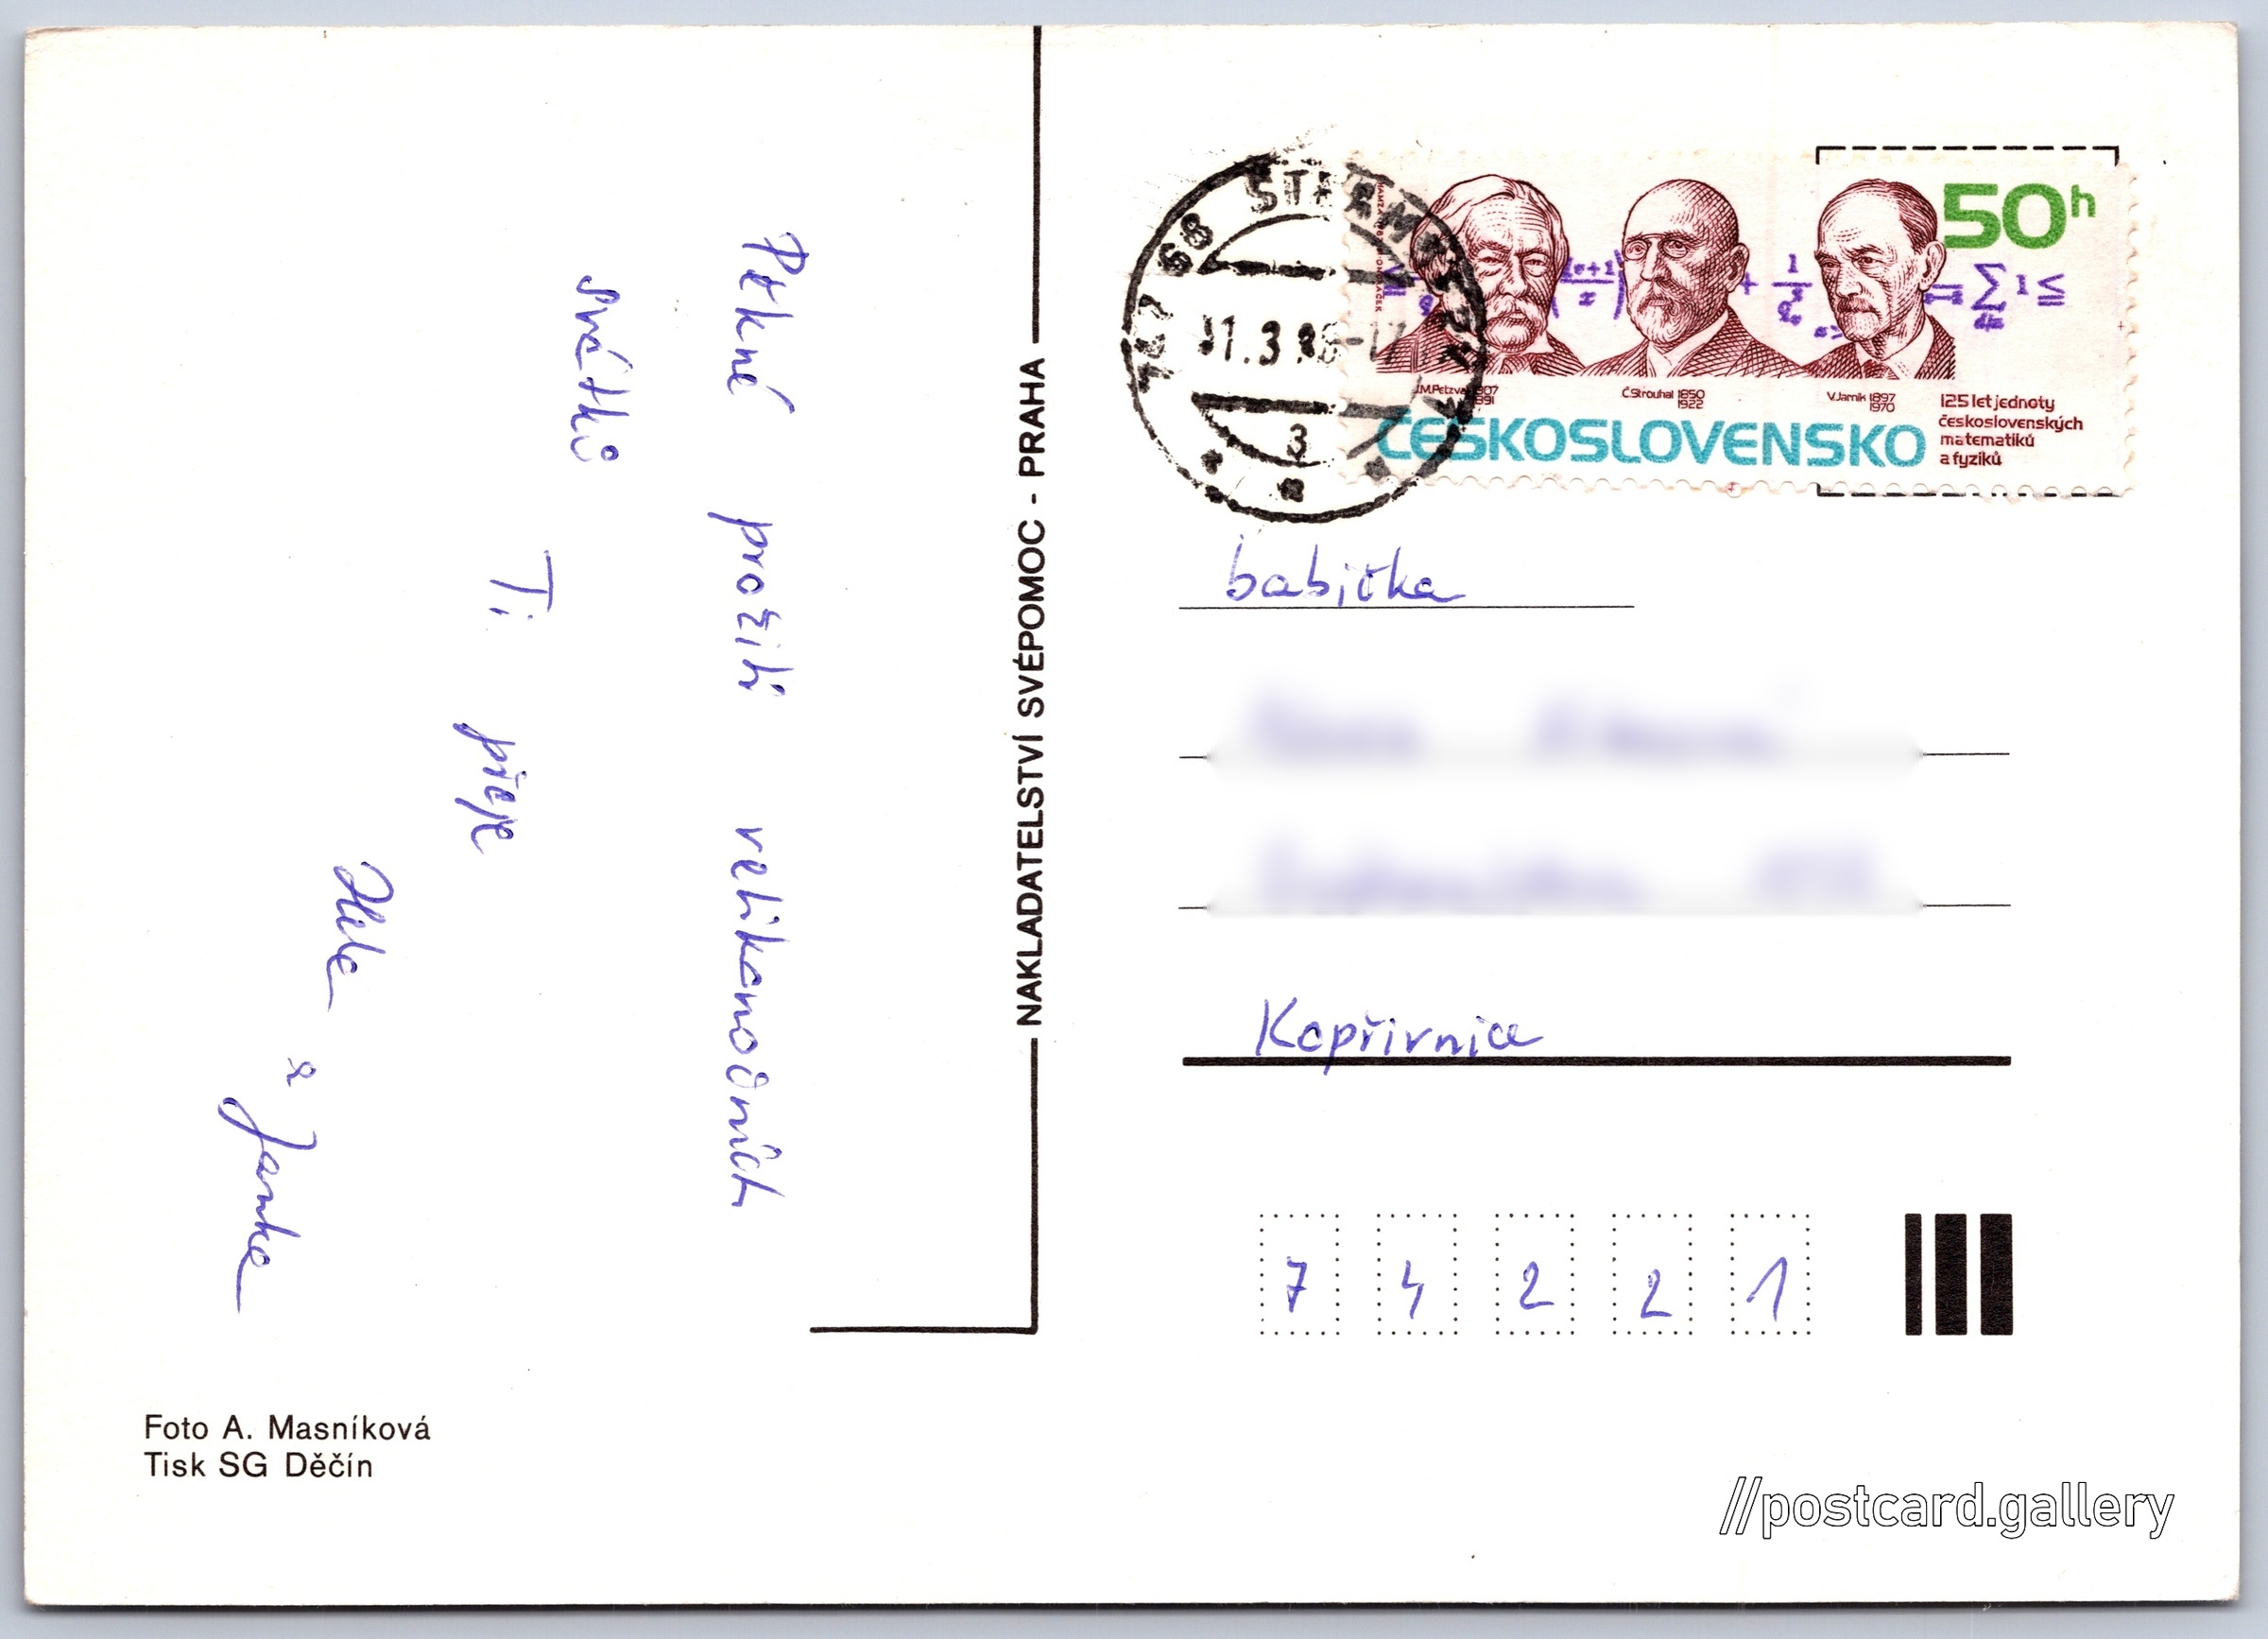 Pěkné prožití velikonočních
svátků
Ti přeje
a Janka
NAKLADATELSTVÍ SVÉPOMOC - PRAHA
Foto A. Masníková
Tisk SG Děčín
50h
J.M.Petzval 1807
1891
Č.Strouhal 1850
1922
V.Jarník 1897
1970
125 let jednoty
československých
matematiků
a fyziků
ČESKOSLOVENSKO
babička
Kopřivnice
7 4 2 2 1
//postcard.gallery